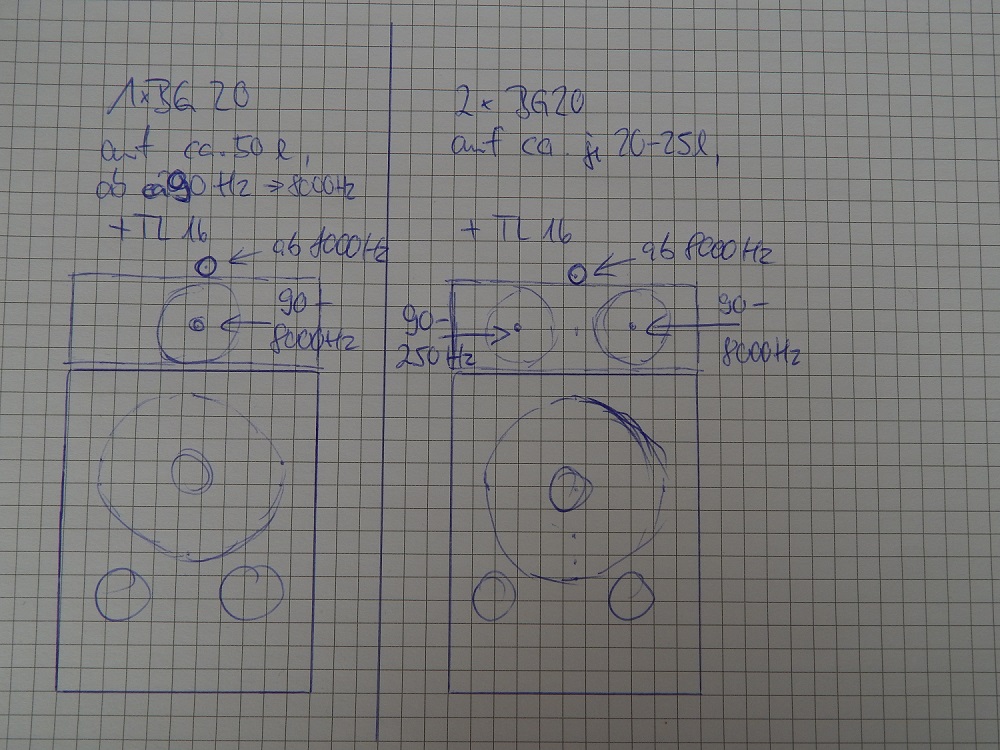 1xBG 20
auf ca. 50 l,
ab 90 Hz → 8000Hz
+ TL 16
ab 8000Hz
90-
8000Hz
2x BG20
auf ca. je 20-25l,
+ TL 16
ab 8000Hz
90-
250Hz
90-
8000Hz